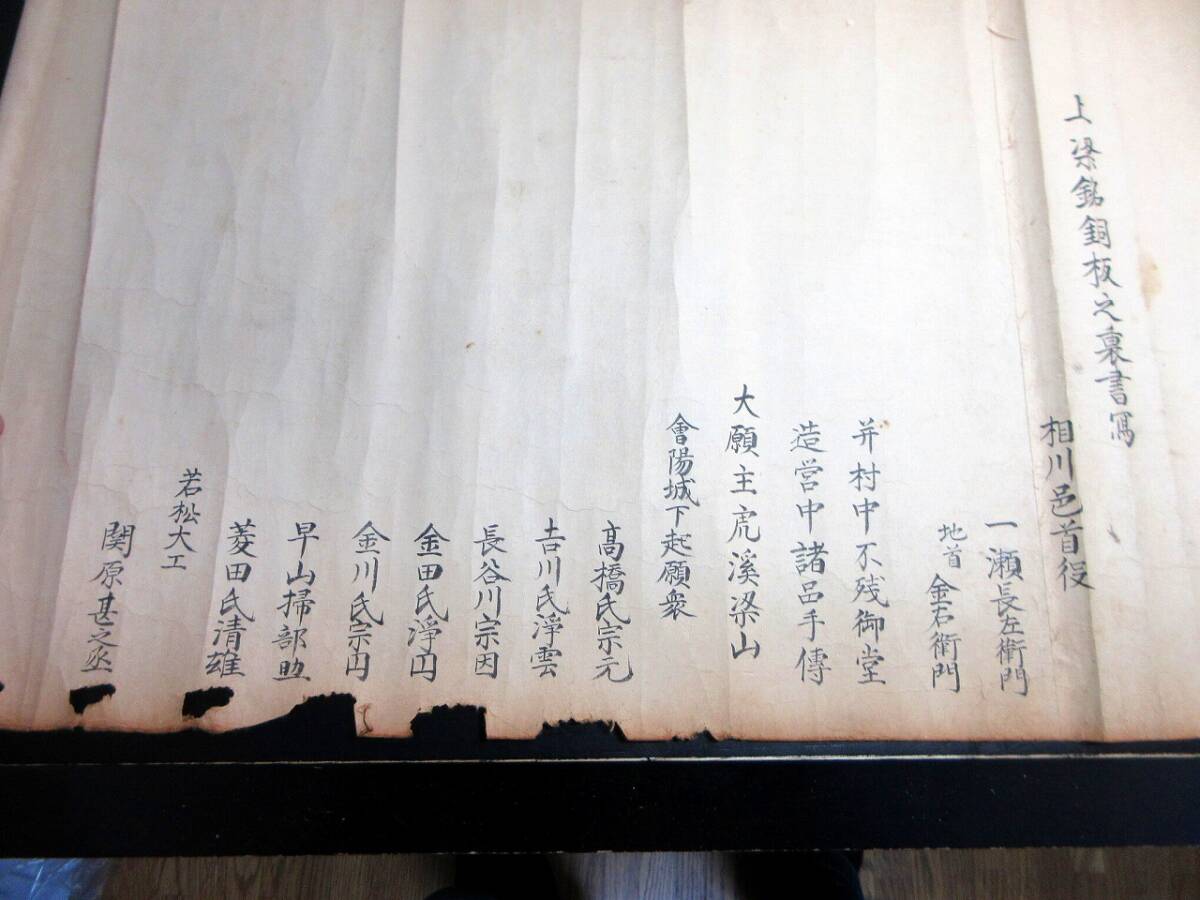 上梁銘銅板之裏書寫
相川邑首役
一瀬長左衛門
地首 金右衛門
并村中不残御堂
造営中諸品手傳
大願主虎溪梁山
會陽城下起願衆
髙橋氏宗元
吉川氏淨雲
長谷川宗因
金田氏淨円
金川氏宗円
早山掃部助
菱田氏清雄
若松大工
関原甚之丞